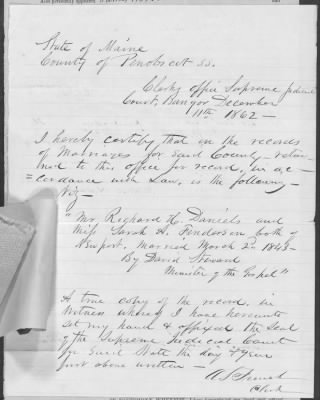 State of Maine
County of Penobscot ss.
Clerks office Supreme Judicial
Court, Bangor December
11th 1862 -
I hereby certify that in the records
of Marriages for said County return
ned to this office for record, in ac-
=cordance with Law, is the following -
Viz -
"Mr. Richard H. Daniels and
Miss Sarah A. Fenderson both of
Newport, Married March 2d 1843 -
By David Steward
Minister of the Gospel"
A true copy of the record, in
Witness whereof I have hereunto
set my hand & affixed the Seal
of the Supreme Judicial Court
for said State the day & year
just above written -
Clerk